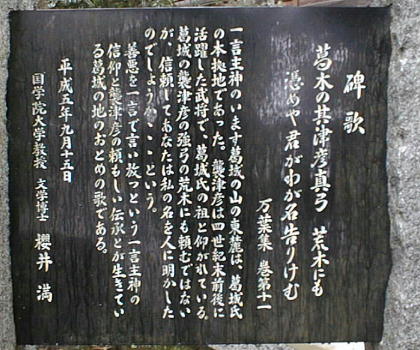 碑歌
葛木の其津彦真弓 荒木にも
憑めや君がわが名告りけむ
万葉集 巻第十一
一言主神のいます葛城の山の東麓は、葛城氏
の本拠地であった。襲津彦は四世紀末前後に
活躍した武将で、葛城氏の祖と仰がれている。
葛城の襲津彦の強弓の荒木にも頼むではない
が、信頼してあなたは私の名を人に明かした
のでしょうか…という。
善悪を一言で言い放つという一言主神の
信仰と襲津彦の頼もしい伝承とが生きてい
る葛城の地のおとめの歌である。
平成五年九月十五日
国学院大学教授 文学博士 櫻井 満